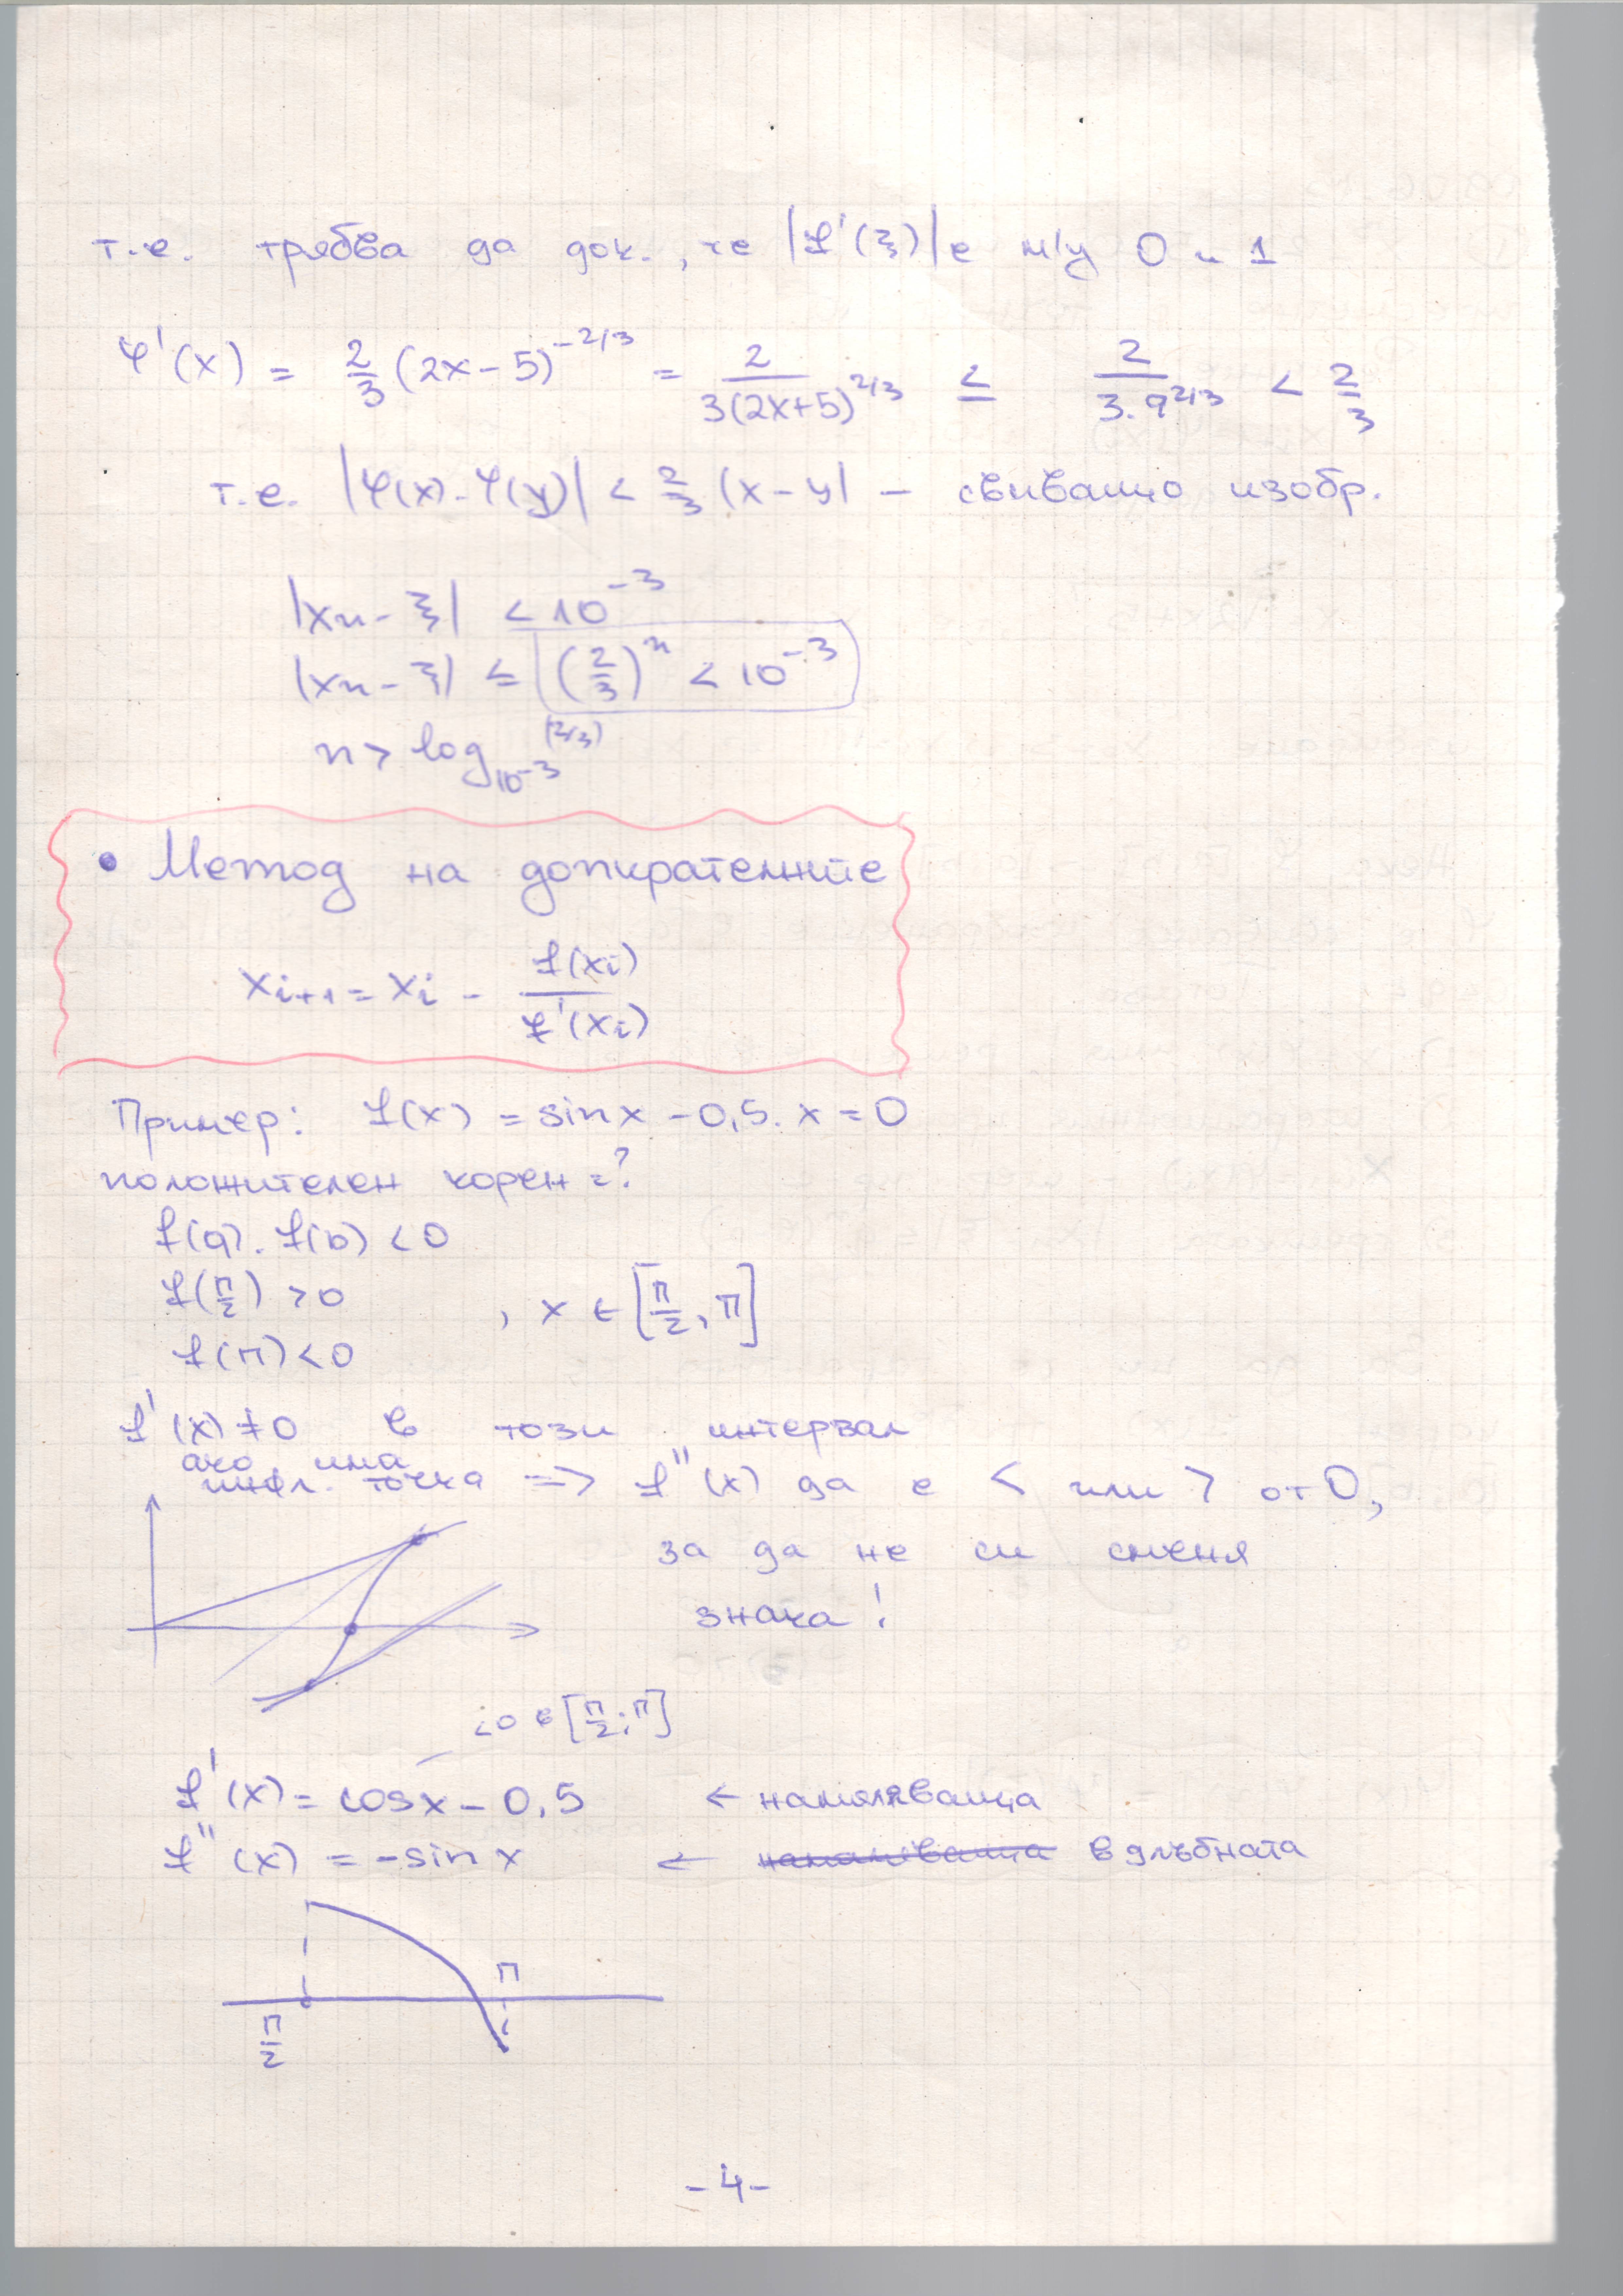 т.е. трябва да док., че |f'(ξ)| е м/у 0 и 1
φ'(x) = 2/3 (2x-5)^-2/3 = 2/3(2x+5)^2/3 ≤ 2/3.9^2/3 < 2/3
т.е. |φ(x)-φ(y)| < 2/3 |x-y| – свиващо изобр.
|xn-ξ| < 10^-3
|xn-ξ| ≤ (2/3)^n < 10^-3
n > log_10^-3 (2/3)
• Метод на допирателните
xi+1 = xi - f(xi)/f'(xi)
Пример: f(x) = sinx - 0,5.x = 0
положителен корен = ?
f(a).f(b) < 0
f(π/2) > 0 , x ∈ [π/2, π]
f(π) < 0
f'(x) ≠ 0 в този интервал
ако има
инфл. точка => f''(x) да е < или > от 0,
за да не си сменя
знака!
<0 в [π/2; π]
f'(x) = cosx - 0,5 ← намаляваща
f''(x) = -sinx ← намаляваща вдлъбната
π
π/2
-4-